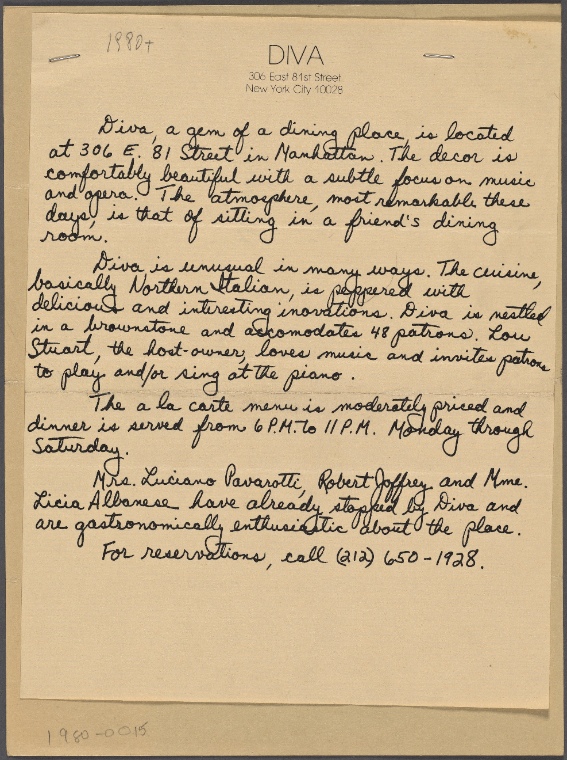 1980+
DIVA
306 East 81st Street
New York City 10028
Diva, a gem of a dining place, is located
at 306 E. 81 Street in Manhattan. The decor is
comfortably beautiful with a subtle focus on music
and opera. The atmosphere, most remarkable these
days, is that of sitting in a friend's dining
room.
Diva is unusual in many ways. The cuisine,
basically Northern Italian, is peppered with
delicious and interesting inovations. Diva is nestled
in a brownstone and accomodates 48 patrons. Lou
Stuart, the host-owner, loves music and invites patrons
to play and/or sing at the piano.
The a la carte menu is moderately priced and
dinner is served from 6 P.M. to 11 P.M. Monday through
Saturday.
Mrs. Luciano Pavarotti, Robert Joffrey and Mme.
Licia Albanese have already stopped by Diva and
are gastronomically enthusiastic about the place.
For reservations, call (212) 650-1928.
1980-0015